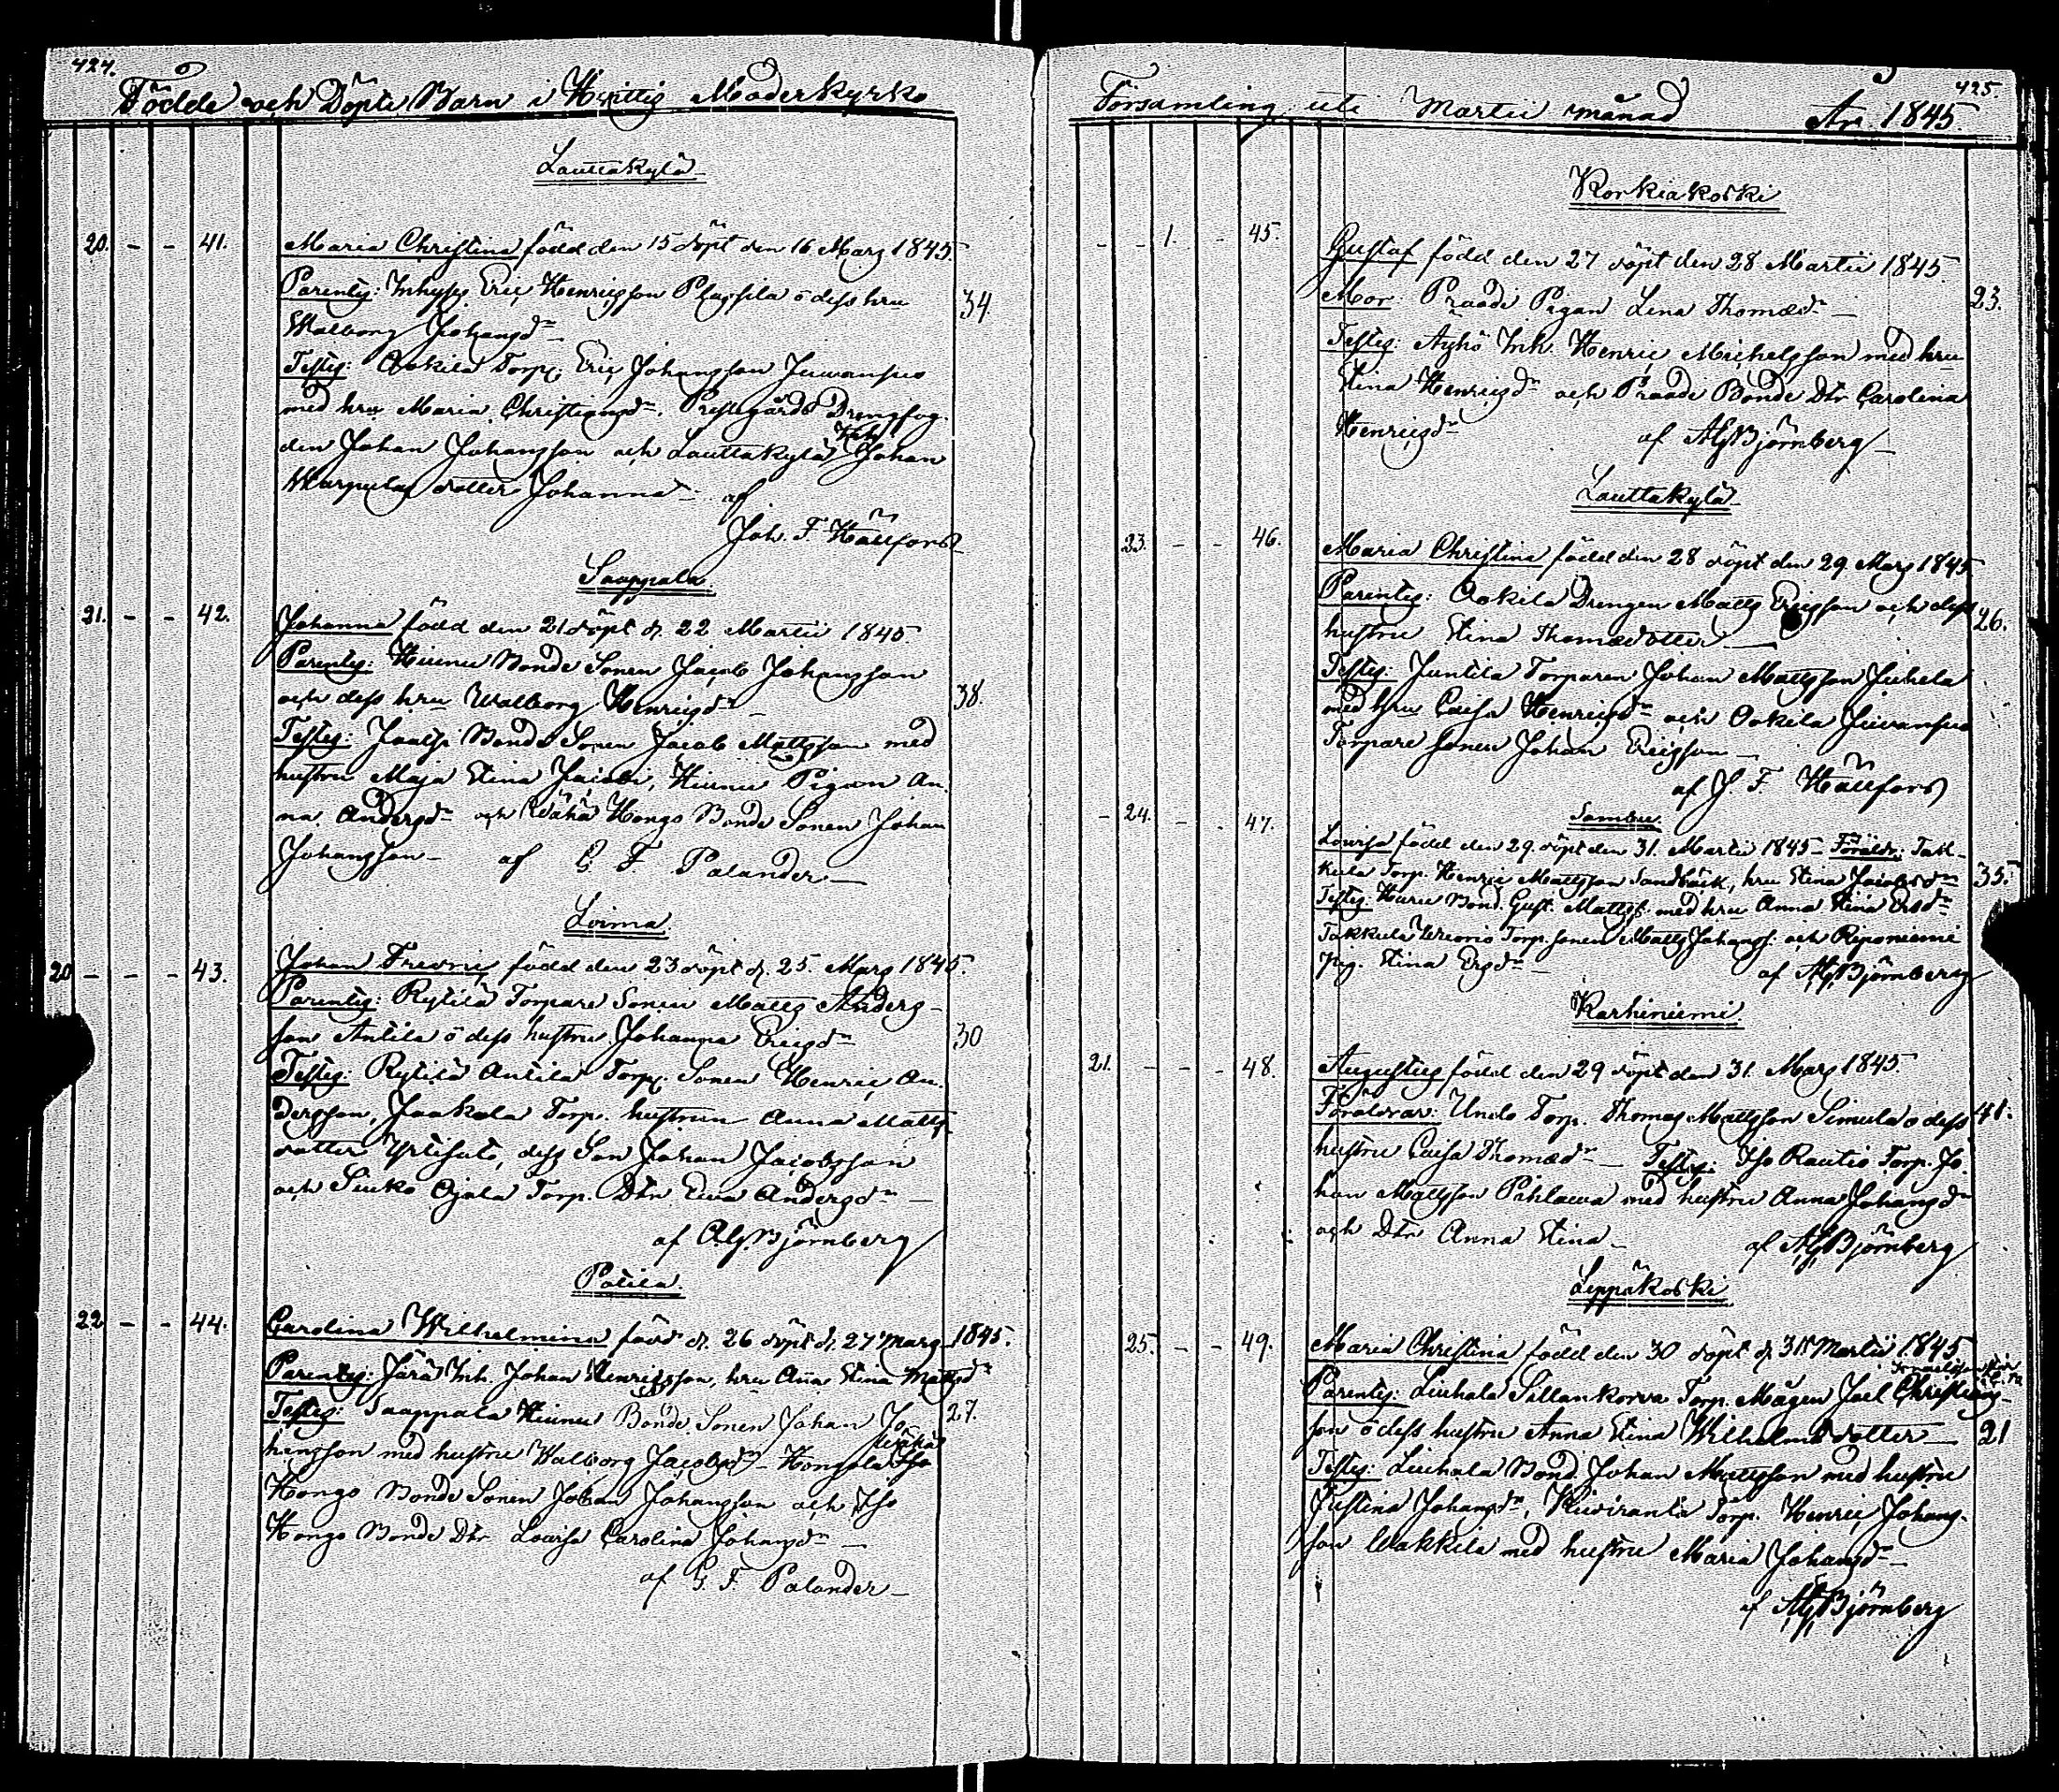 424.
Födde och Döpte Barn i Huittis Moderkyrko
Lauttakylä
20. - - 41. Maria Christina född den 15 döpt den 16 Mars 1845.
Parentes: Inhyses Eric Henricsson Plassila o dess hru 34.
Walborg Johansdr
Testes: Ookila Torp. Eric Johansson Juwansuo
med hru Maria Christiansdr. Prestgårds Drengfog-
den Johan Johansson och Lauttakylä Inh. Johan
dotter Johanna af
Joh. F. Hällfors
Saappala.
21. - - 42. Johanna född den 21 döpt d. 22 Martii 1845
Parentes: Hiunu Bonde Sonen Jacob Johansson
och dess hru Walborg Henricsdr 38.
Testes: Bonde Sonen Jacob Mattsson med
hustru Maja Stina Jacobs, Hiunu Pigan An-
na Andersdr och Wähä Hongo Bonde Sonen Johan
Johansson af G. F. Palander
Loima.
20 - - - 43. Johan Fredric född den 23 döpt d. 25. Mars 1845.
Parentes: Rytilä Torpare Sonen Matts Anders-
son Antila o dess hustru Johanna Ericsdr 30
Testes: Rytilä Antila Torp. Sonen Henric An-
dersson, Jaakola Torp. hustrun Anna Matts-
dotter, dess Son Johan Jacobsson
och Suko Ojala Torp. Dtr Ewa Andersdr
af A.G. Björnberg
Potila.
22 - - 44. Carolina Wilhelmina född d. 26 döpt d. 27 Mars 1845.
Parentes: Järä Inh. Johan Henricsson, hru Anna Stina Mattsdr
Testes: Saappala Hiunu Bonde Sonen Johan Jo- 27.
hansson med hustru Walborg Jacobsdr Hongola
Hongo Bonde Sonen Johan Johansson och Iso
Hongo Bonde Dtr Lovisa Carolina Johansdr
af G. F. Palander
425.
Församling uti Martii månad År 1845
Korkiakoski
- - 1. - 45. Gustaf född den 27 döpt den 28 Martii 1845
Mor: Praadi Pigan Lena Thomædr 23.
Testes: Äyhö Inh. Henric Michelsson med hru
Stina Henricsdr och Praadi Bonde Dtr Carolina
Henricsdr af AGBjörnberg
Lauttakylä
23. - - 46. Maria Christina född den 28 döpt den 29 Mars 1845
Parentes: Ookila Drengen Matts Ericsson och dess 26.
hustru Stina Thomædotter
Testes: Juntila Torparen Johan Mattsson Juhela
med hru Caisa Henricsdr och Ookila Juwansuo
Torpare sonen Johan Ericsson
af J F Hällfors
Sambu.
- 24. - - 47. Lovisa född den 29. döpt den 31. Martii 1845 Föräldr: Tak-
kula Torp. Henric Mattsson Sandbäck, hru Stina Jacobsdr 35.
Testes: Bond. Gust. Mattss. med hru Anna Stina Ersdr
Takkula Torp. sonen Matts Johanss. och Riponiemi
pig. Stina Ersdr af AGBjörnberg
Karhiniemi.
21. - - - 48. Augustus född den 29 döpt den 31. Mars 1845.
Föräldrar: Undo Torp. Thomas Mattsson Simula o dess 41.
hustru Caisa Thomædr Testes: Iso Rautio Torp. Jo-
han Mattsson Pihlawa med hustru Anna Johansdr
och Dtr Anna Stina af AGBjörnberg
Leppäkoski
25. - - 49. Maria Christina född den 30 döpt d. 31 Martii 1845
Parentes: Liuhala Sillankorwa Torp. Mågen Joel Christians-
son o dess hustru Anna Stina Wilhelmsdotter 21
Testes: Liuhala Bond. Johan Mattsson med hustru
Justina Johansdr, Kiwiranta Torp. Henric Johans-
son Wakkila med hustru Maria Johansdr
af AGBjörnberg